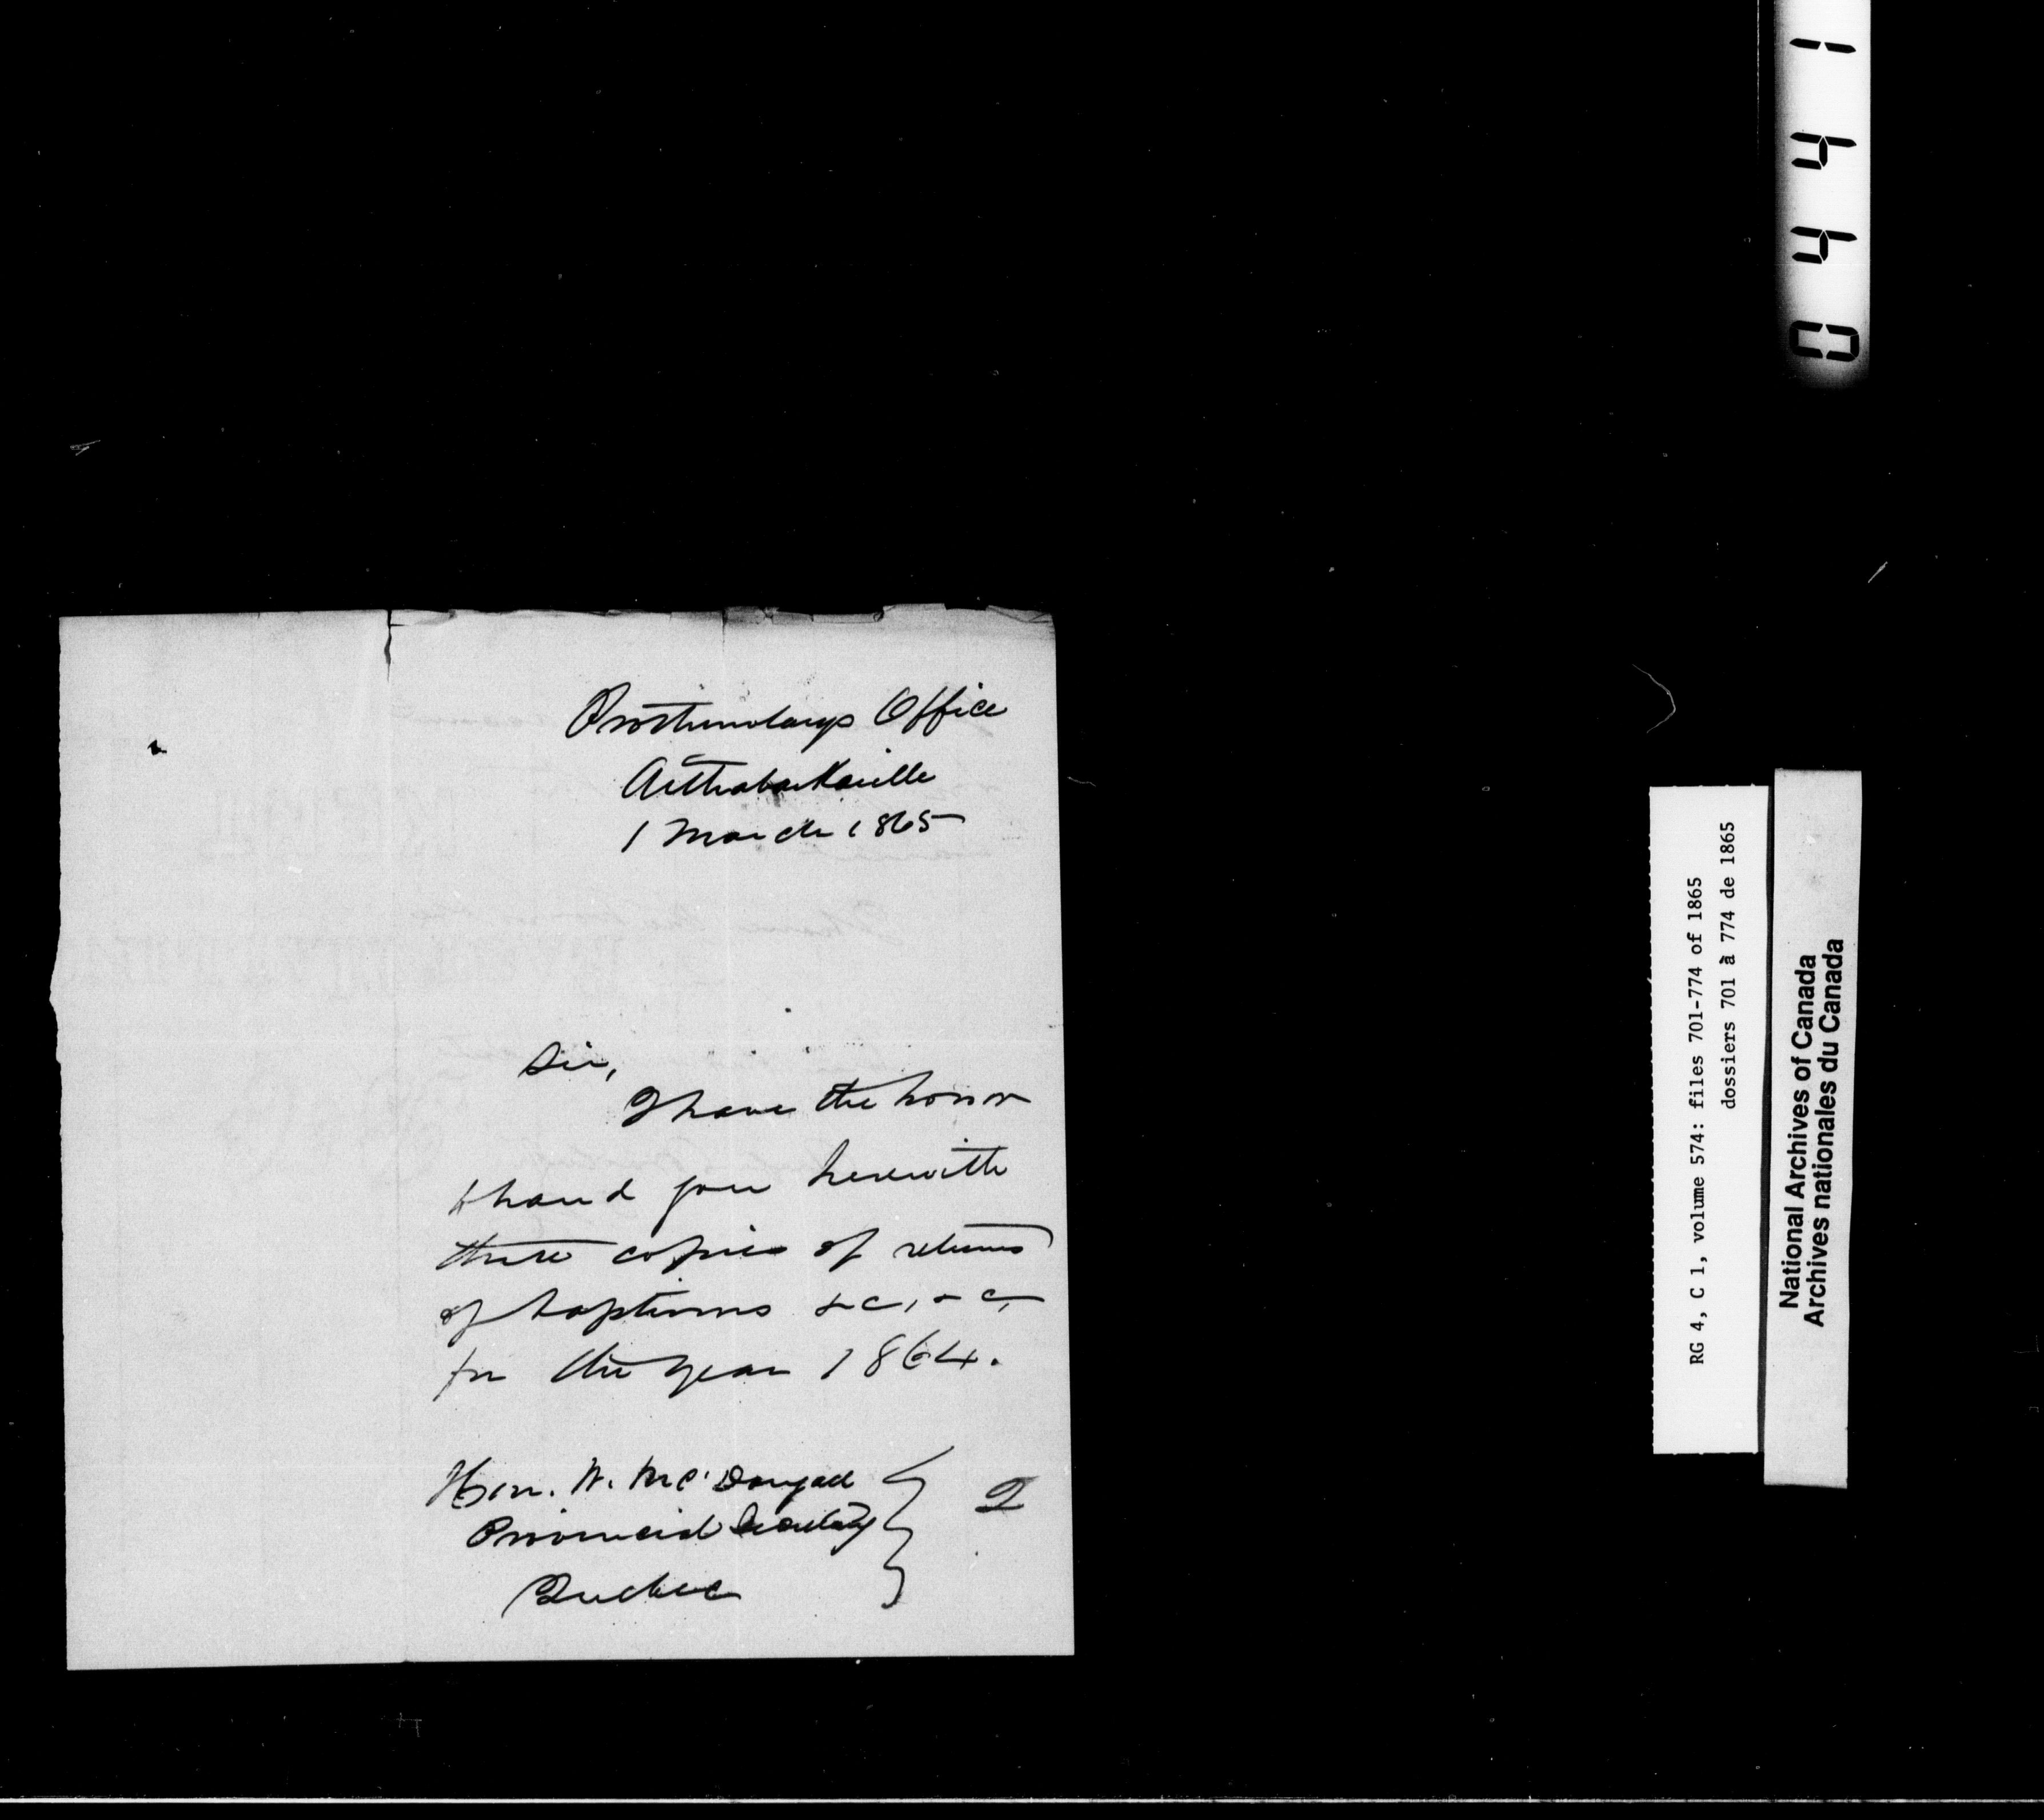 Prothonotarys Office
Arthabaskaville
1 March 1865
Sir,
I have the honor
to hand you herewith
three copies of returns
of baptisms &c, &c,
for the year 1864.
Hon. W. McDougall
Provincial Secretary
Quebec
2
0441
RG 4, C 1, volume 574: files 701-774 of 1865
dossiers 701 à 774 de 1865
National Archives of Canada
Archives nationales du Canada